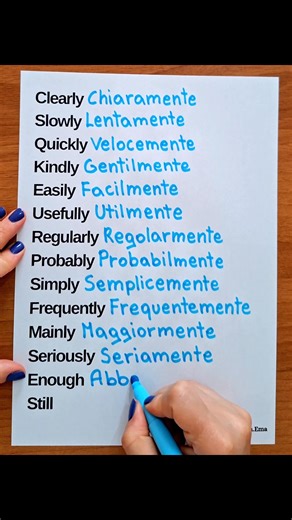 Clearly Chiaramente
Slowly Lentamente
Quickly Velocemente
Kindly Gentilmente
Easily Facilmente
Usefully Utilmente
Regularly Regolarmente
Probably Probabilmente
Simply Semplicemente
Frequently Frequentemente
Mainly Maggiormente
Seriously Seriamente
Enough Abb
Still